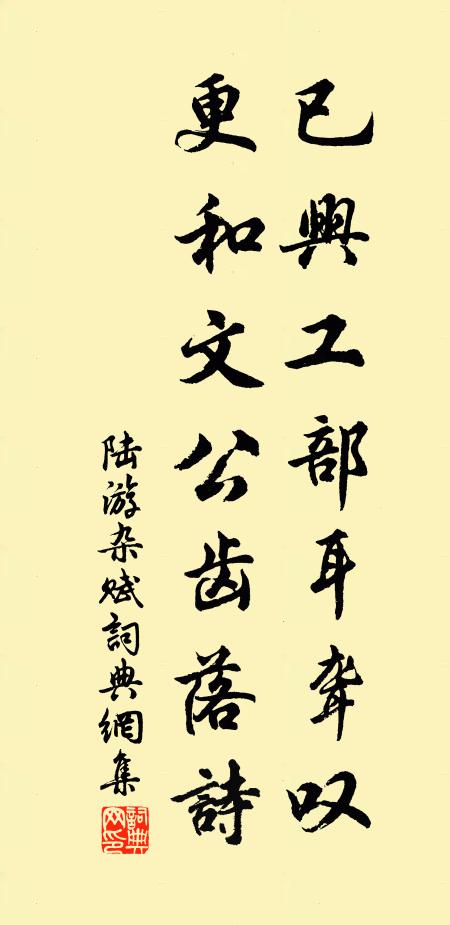 已興工部耳聋叹
更和文公齿落詩
陆游杂赋詞典網集
詞典网印